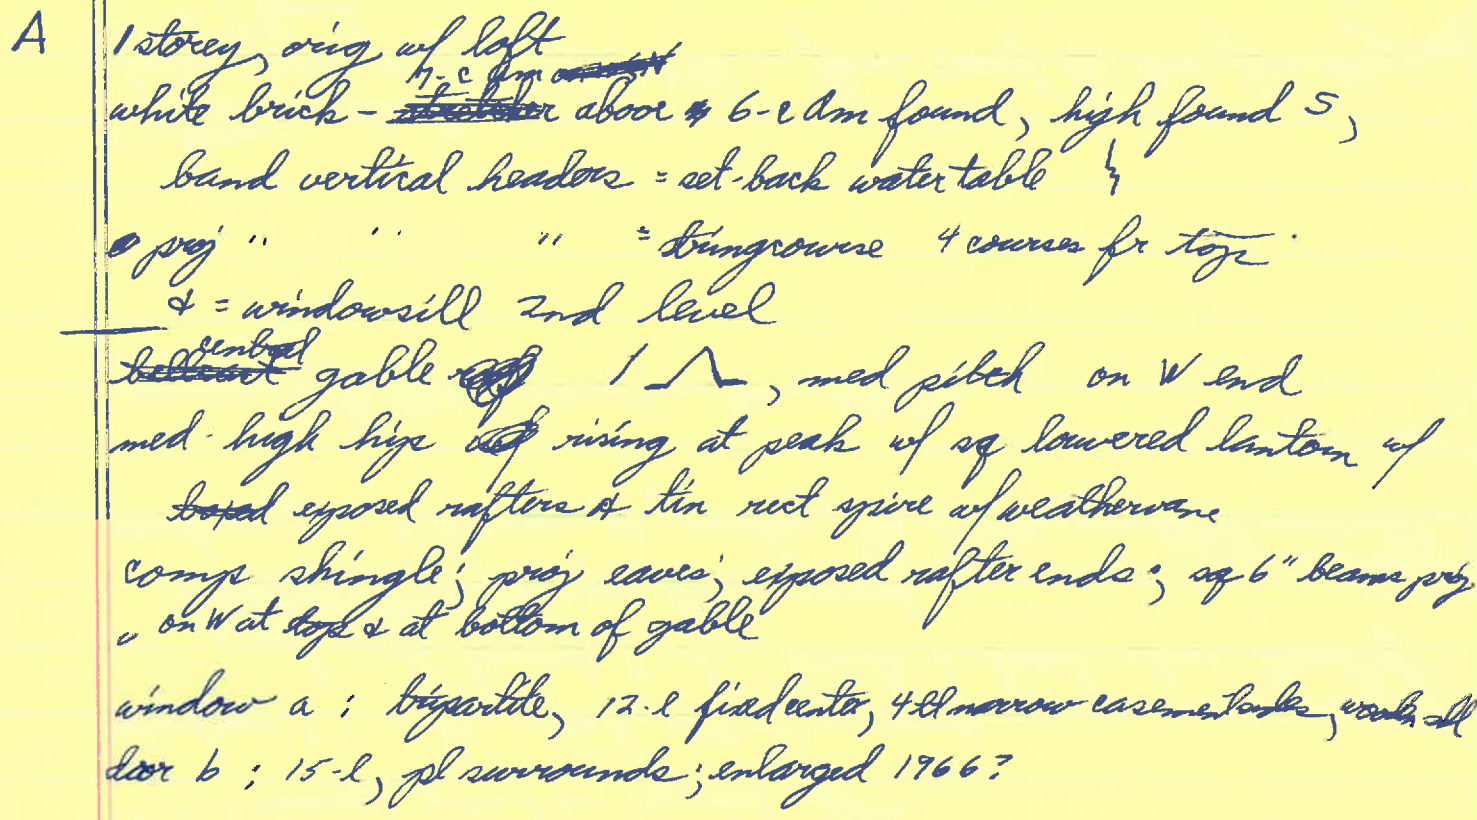 A
1 storey, orig w/ loft
7-c Am
white brick - above 6-c Am found, high found S,
band vertical headers = set-back watertable
proj " " " = stringcourse 4 courses fr top
& = windowsill 2nd level
central
bellcast gable 1 , med pitch on W end
med-high hip rising at peak w/ sq louvered lantern w/
boxed exposed rafters & tin rect spire w/ weathervane
comp shingle; proj eaves; exposed rafter ends; sq 6" beams proj
" on W at top & at bottom of gable
window a : tripartite, 12-l fixed center, 4-l narrow casement sides, wooden sill
door b : 15-l, pl surrounds; enlarged 1966?